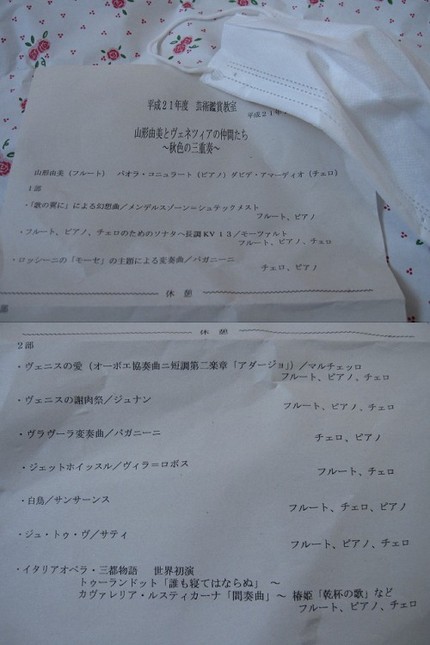 平成21年度 芸術鑑賞教室
平成21年
山形由美とヴェネツィアの仲間たち
～秋色の三重奏～
山形由美（フルート） パオラ・コニュラート（ピアノ）ダビデ・アマーディオ（チェロ）
1部
・「歌の翼に」による幻想曲／メンデルスゾーン＝シュテックメスト
フルート、ピアノ
・フルート、ピアノ、チェロのためのソナタヘ長調KV13／モーツァルト
フルート、ピアノ、チェロ
・ロッシーニの「モーセ」の主題による変奏曲／パガニーニ
チェロ、ピアノ
休憩
休憩
2部
・ヴェニスの愛（オーボエ協奏曲ニ短調第二楽章「アダージョ」）／マルチェッロ
フルート、ピアノ、チェロ
・ヴェニスの謝肉祭／ジュナン
フルート、ピアノ、チェロ
・ヴラヴーラ変奏曲／パガニーニ
チェロ、ピアノ
・ジェットホイッスル／ヴィラ＝ロボス
フルート、チェロ
・白鳥／サンサーンス
フルート、チェロ、ピアノ
・ジュ・トゥ・ヴ／サティ
フルート、ピアノ、チェロ
・イタリアオペラ・三都物語 世界初演
トゥーランドット「誰も寝てはならぬ」 ～
カヴァレリア・ルスティカーナ「間奏曲」～ 椿姫「乾杯の歌」など
フルート、ピアノ、チェロ